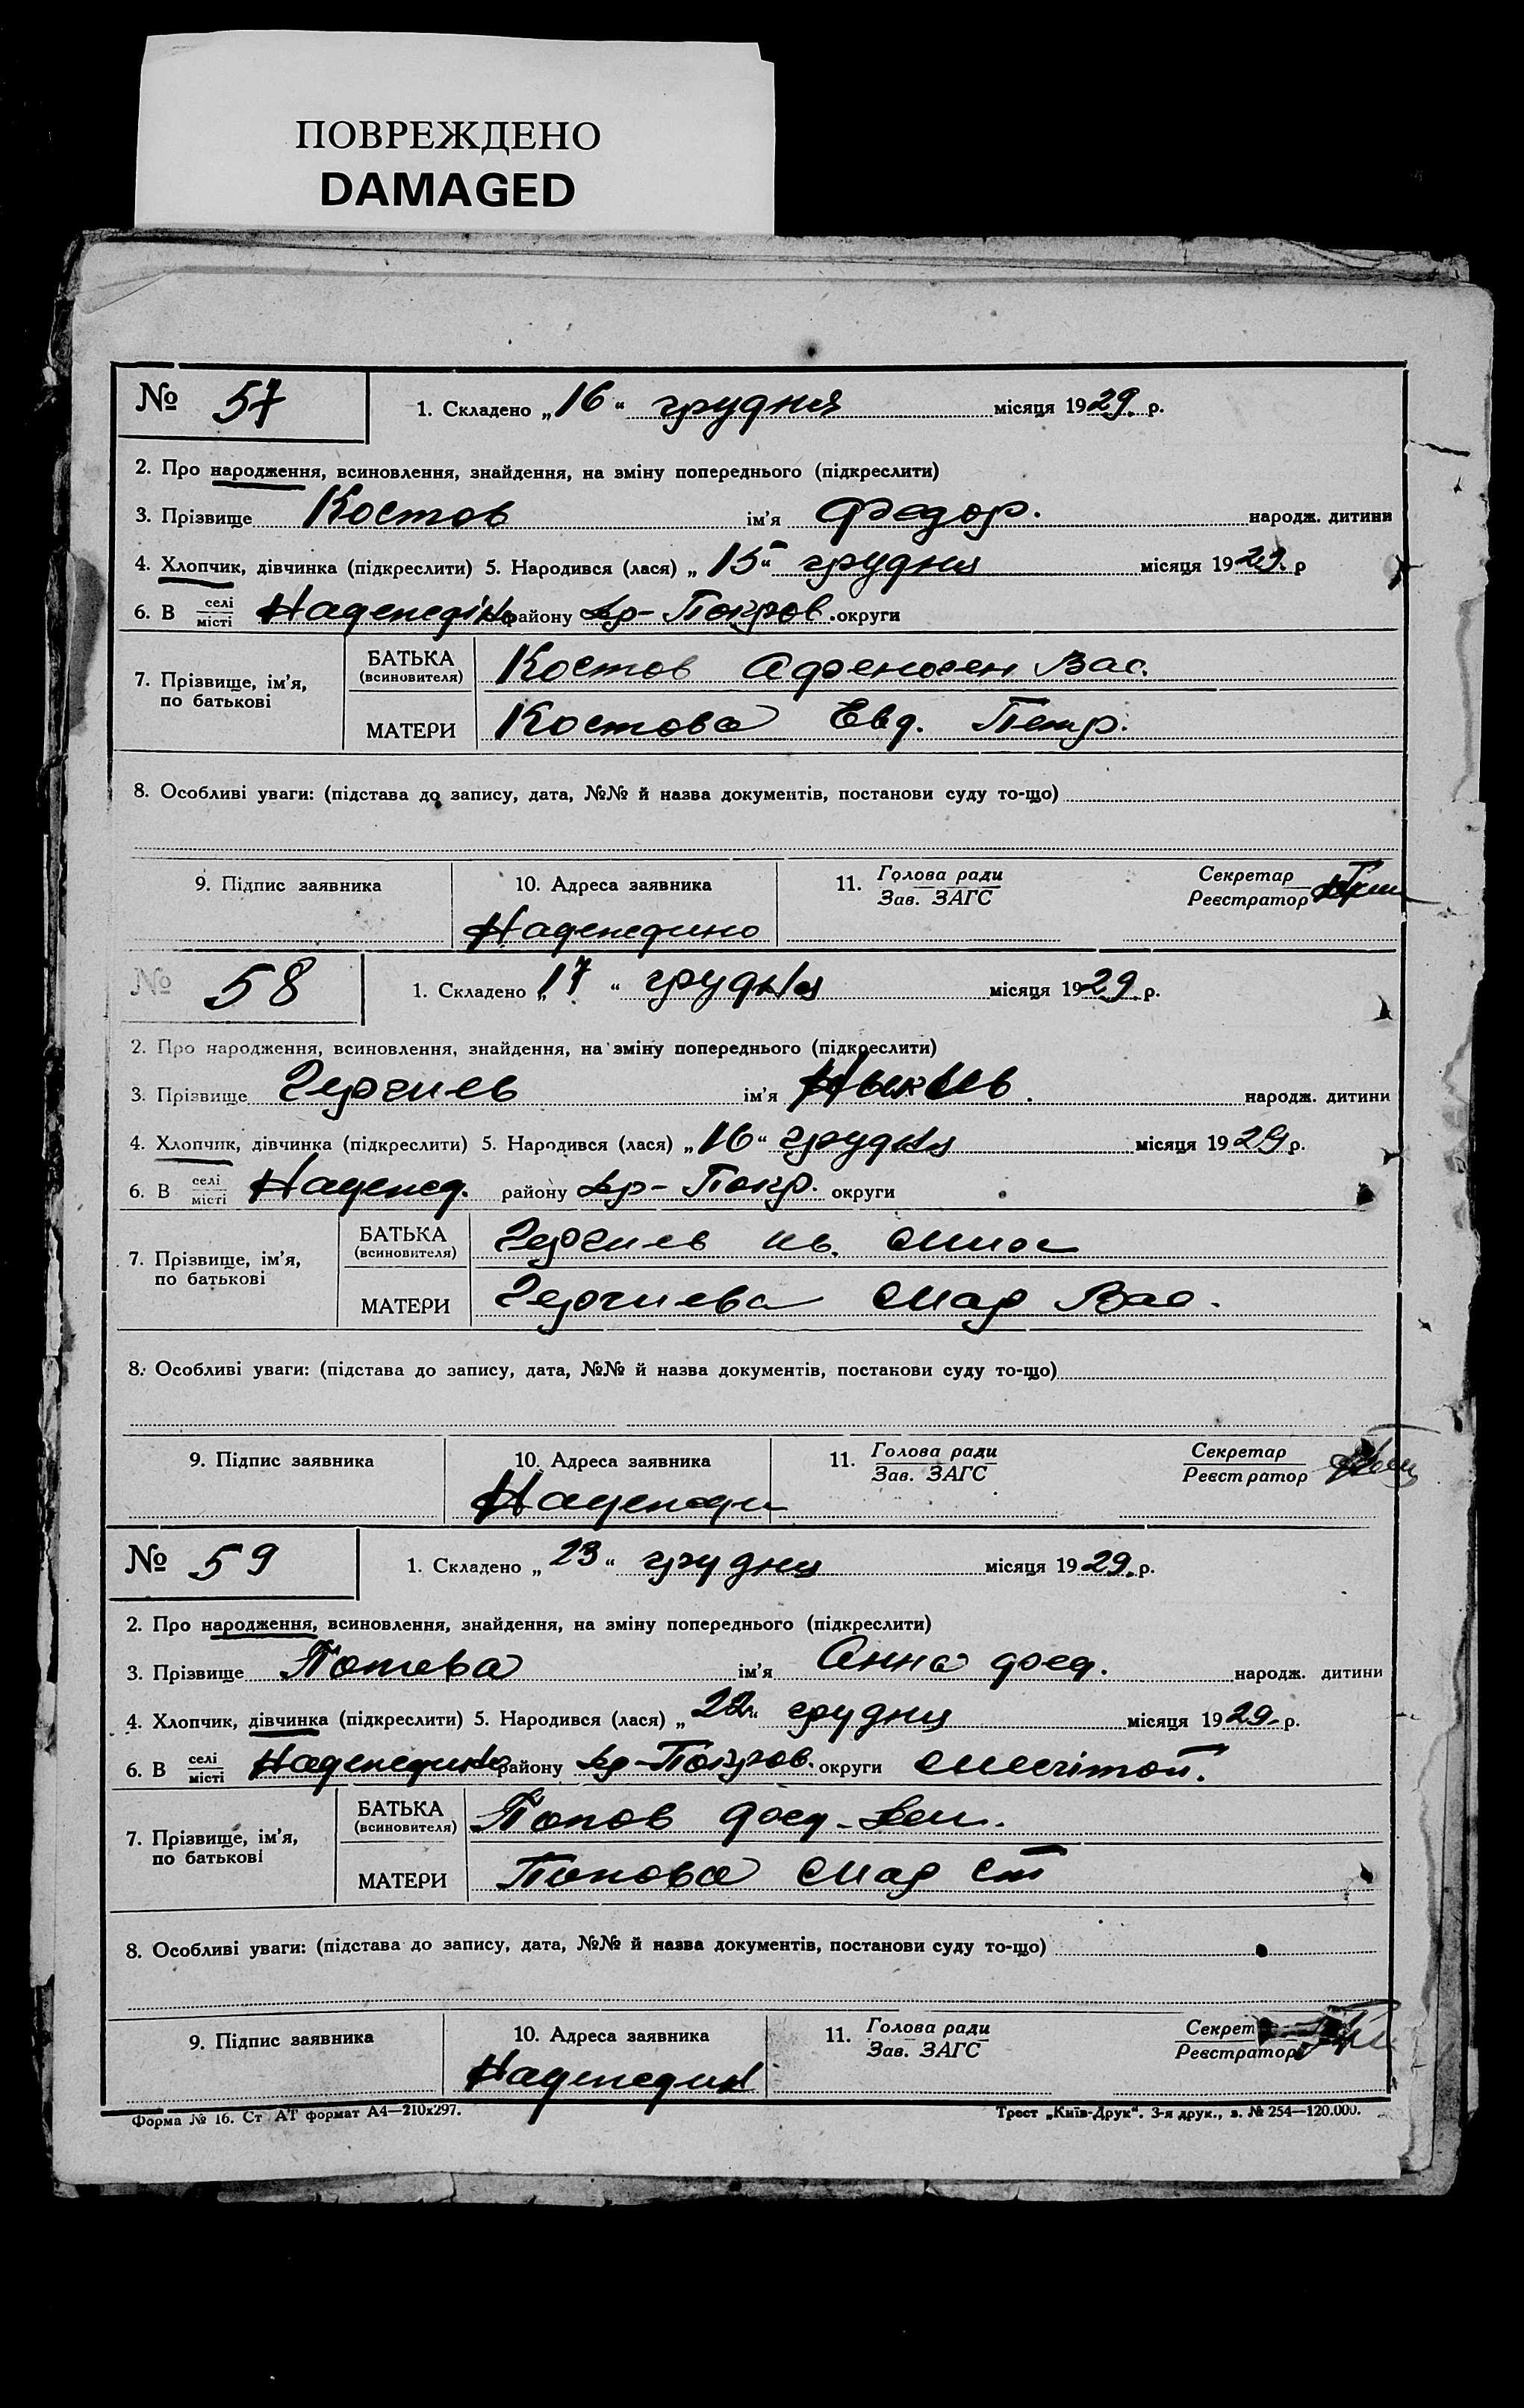 ПОВРЕЖДЕНО
DAMAGED
№ 57
1. Складено „16“ грудня місяця 1929. р.
2. Про народження, всиновлення, знайдення, на зміну попереднього (підкреслити)
3. Прізвище Костов ім’я Федор. народж. дитини
4. Хлопчик, дівчинка (підкреслити) 5. Народився (лася) „15“ грудня місяця 1929. р
6. В селі місті району -Покров. округи
7. Прізвище, ім’я, по батькові
БАТЬКА (всиновителя) Костов Афеноген Вас.
МАТЕРИ Костова Евд. Петр.
8. Особливі уваги: (підстава до запису, дата, №№ й назва документів, постанови суду то-що)
9. Підпис заявника
10. Адреса заявника
11. Голова ради Зав. ЗАГС
Секретар Реєстратор
№ 58
1. Складено „17“ грудня місяця 1929. р.
2. Про народження, всиновлення, знайдення, на зміну попереднього (підкреслити)
3. Прізвище ім’я народж. дитини
4. Хлопчик, дівчинка (підкреслити) 5. Народився (лася) „16“ грудня місяця 1929 р.
6. В селі місті району -Покр. округи
7. Прізвище, ім’я, по батькові
БАТЬКА (всиновителя) Ив.
МАТЕРИ Мар Вас.
8. Особливі уваги: (підстава до запису, дата, №№ й назва документів, постанови суду то-що)
9. Підпис заявника
10. Адреса заявника
11. Голова ради Зав. ЗАГС
Секретар Реєстратор
№ 59
1. Складено „23“ грудня місяця 1929. р.
2. Про народження, всиновлення, знайдення, на зміну попереднього (підкреслити)
3. Прізвище ім’я Анна народж. дитини
4. Хлопчик, дівчинка (підкреслити) 5. Народився (лася) „22“ грудня місяця 1929. р.
6. В селі місті району -Покров. округи Мелітоп.
7. Прізвище, ім’я, по батькові
БАТЬКА (всиновителя) Попов
МАТЕРИ Попова Мар Ст
8. Особливі уваги: (підстава до запису, дата, №№ й назва документів, постанови суду то-що)
9. Підпис заявника
10. Адреса заявника
11. Голова ради Зав. ЗАГС
Реєстратор
Форма № 16. Ст АТ формат А4—210х297.
Трест „Київ-Друк“. 3-я друк., з. № 254—120.000.